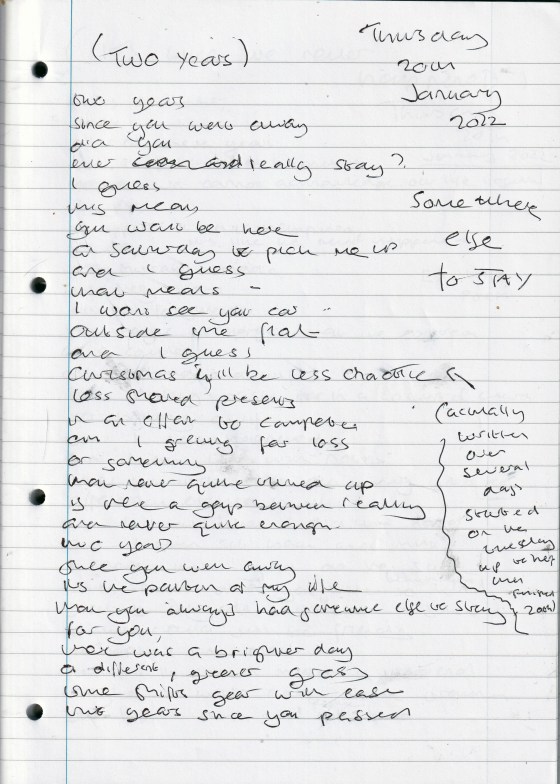 (Two years)
Thursday
20th
January
2022
two years
since you went away
did you
ever really stay?
I guess
this means
you won't be here
on Saturday to pick me up
and I guess
that means -
I won't see your car
outside the flat
and I guess
Christmas will be less chaotic
less shared presents
in an effort to compete
am I grieving for loss
or something
that never quite turned up
is there a gap between reality
and never quite enough.
two years
since you went away
it's the pattern of my life
that you always had somewhere else to stay
for you,
there was a brighter day
a different, greener grass
time shifts gear with ease
two years since you passed
Somewhere
else
to STAY
(actually
written
over
several
days
started
on the
Tuesday
up to
finished
20th)